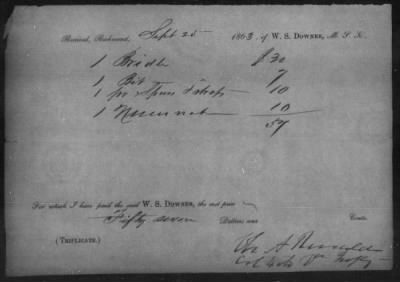 Received, Richmond, Sept 25 1863, of W. S. DOWNER, M. S. K.
1 Bridle $20
1 Bit 7
1 pr Spurs & straps 10
1 10
57
For which I have paid the said W. S. DOWNER, the cost price
Fifty seven Dollars Cents.
(TRIPLICATE.)
Col